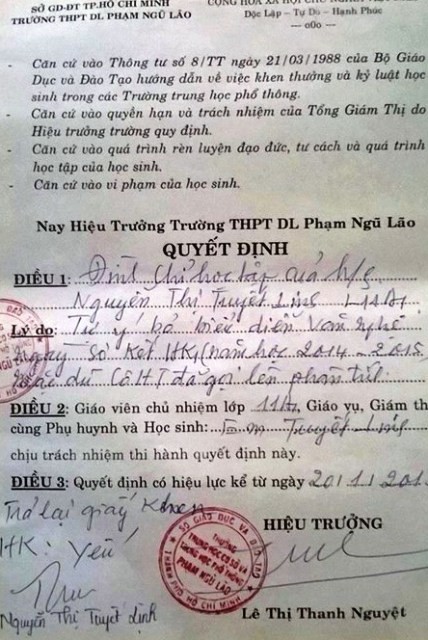 SỞ GD-ĐT TP.HỒ CHÍ MINH
TRƯỜNG THPT DL PHẠM NGŨ LÃO
CỘNG HÒA XÃ HỘI CHỦ NGHĨA
Độc Lập - Tự Do - Hạnh Phúc
--- o0o ---
- Căn cứ vào Thông tư số 8/TT ngày 21/03/1988 của Bộ Giáo
Dục và Đào Tạo hướng dẫn về việc khen thưởng và kỷ luật học
sinh trong các Trường trung học phổ thông.
- Căn cứ vào quyền hạn và trách nhiệm của Tổng Giám Thị do
Hiệu trưởng trường quy định.
- Căn cứ vào quá trình rèn luyện đạo đức, tư cách và quá trình
học tập của học sinh.
- Căn cứ vào vi phạm của học sinh.
Nay Hiệu Trưởng Trường THPT DL Phạm Ngũ Lão
QUYẾT ĐỊNH
ĐIỀU 1: Đình chỉ học tập của h/s
Nguyễn Thị Tuyết Linh 11A1
Lý do: Tự ý bỏ biểu diễn văn nghệ
ngày Sơ kết HK1 (năm học 2014 - 2015
mặc dù Cô HT đã gọi lên phân tích
ĐIỀU 2: Giáo viên chủ nhiệm lớp 11A1, Giáo vụ, Giám th
cùng Phụ huynh và Học sinh: Em Tuyết Linh
chịu trách nhiệm thi hành quyết định này.
ĐIỀU 3: Quyết định có hiệu lực kể từ ngày 20/1/201
Trả lại giấy khen
HK: Yếu
HIỆU TRƯỞNG
SỞ GIÁO DỤC VÀ ĐÀO TẠO
TRƯỜNG
TRUNG HỌC CƠ SỞ VÀ
TRUNG HỌC PHỔ THÔNG
PHẠM NGŨ LÃO
THÀNH PHỐ HỒ CHÍ MINH
Nguyễn Thị Tuyết Linh
Lê Thị Thanh Nguyệt